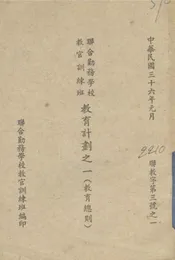 中華民國三十六年元月
聯教字第三號之一
聯合勤務學校
教官訓練班
教育計劃之一(教育總則)
聯合勤務學校教官訓練班編印